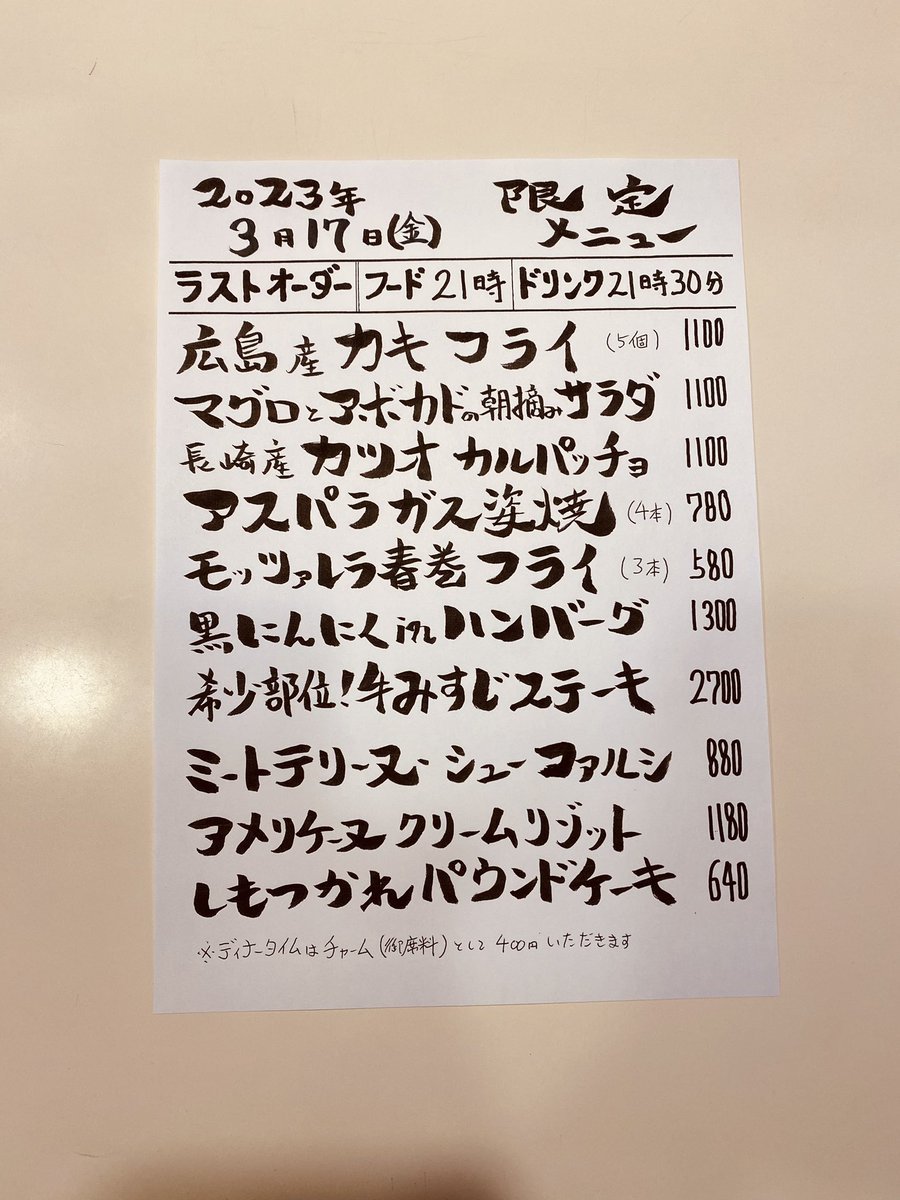 2023年
3月17日(金)
限定
メニュー
ラストオーダー フード21時 ドリンク21時30分
広島産カキフライ(5個) 1100
マグロとアボカドの朝摘みサラダ 1100
長崎産カツオカルパッチョ 1100
アスパラガス姿焼(4本) 780
モッツァレラ春巻フライ(3本) 580
黒にんにくinハンバーグ 1300
希少部位!牛みすじステーキ 2700
ミートテリーヌ・シューファルシ 880
アメリケーヌクリームリゾット 1180
しもつかれパウンドケーキ 640
※ディナータイムはチャーム(御席料)として400円いただきます